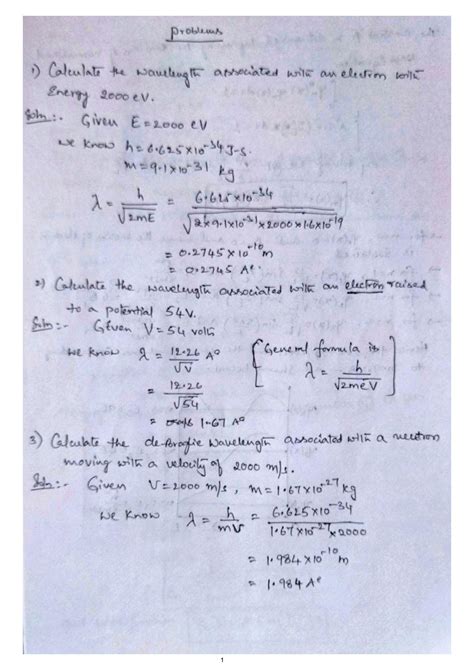 Problems
1) Calculate the wavelength associated with an electron with
Energy 2000 eV.
Soln:- Given E = 2000 eV
We know h = 6.625×10⁻³⁴ J-s.
m = 9.1×10⁻³¹ kg
λ = h/√2mE = 6.625×10⁻³⁴/√2×9.1×10⁻³¹×2000×1.6×10⁻¹⁹
= 0.2745×10⁻¹⁰ m
= 0.2745 A°
2) Calculate the wavelength associated with an electron raised
to a potential 54V.
Soln:- Given V = 54 volts
We know λ = 12.26/√V A° [General formula is λ = h/√2meV]
= 12.26/√54
= 1.67 A°
3) Calculate the de-Broglie wavelength associated with a neutron
moving with a velocity of 2000 m/s.
Soln:- Given V = 2000 m/s, m = 1.67×10⁻²⁷ kg
We know λ = h/mV = 6.625×10⁻³⁴/1.67×10⁻²⁷×2000
= 1.984×10⁻¹⁰ m
= 1.984 A°
1